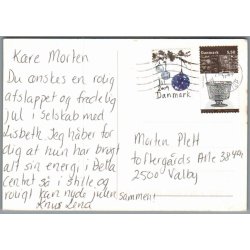 Kære Morten
Du ønskes en rolig
afslappet og fredelig
jul i selskab med
Lisbeth. Jeg håber for
dig at hun har brugt
alt sin energi i Bella
Centet så I stille og
roligt kan nyde julen sammen!
Knus Lena
Danmark
Danmark
5.50
Morten Plett
Toftergårds Alle 38 4th
2500 Valby